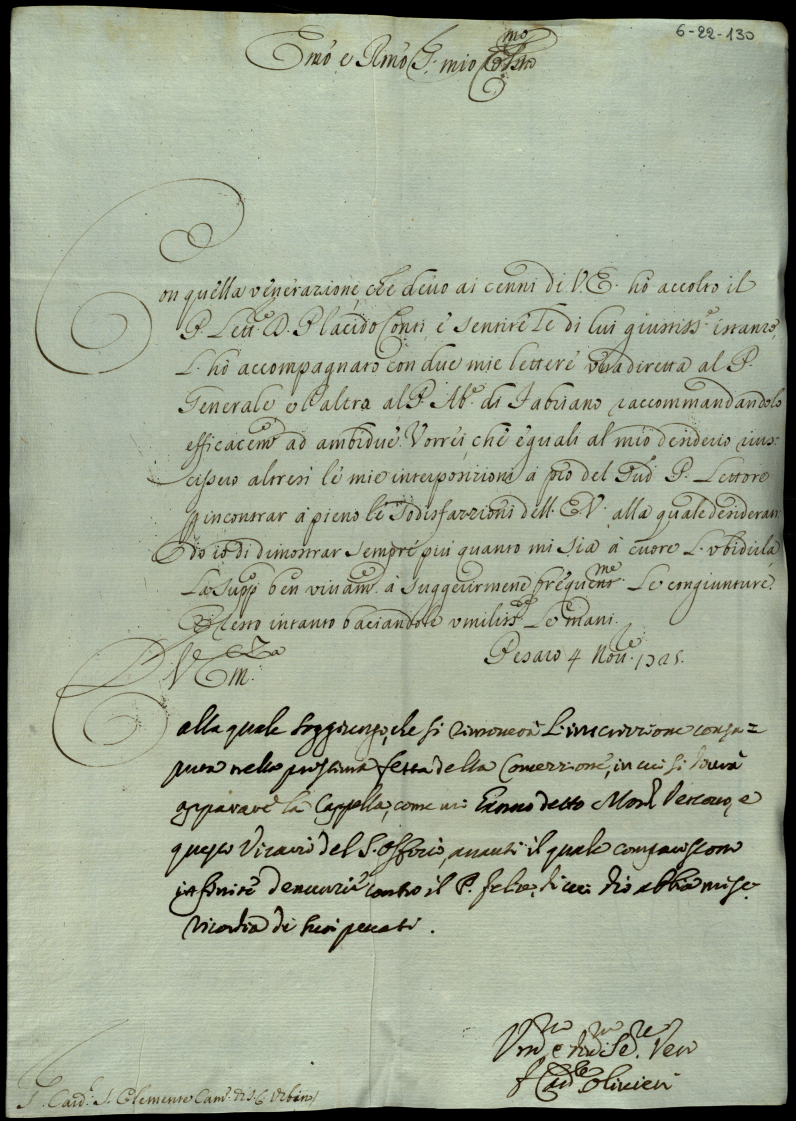 6-22-130
Emo e Rmo S. mio Colmo
Con quella venerazione, che devo ai cenni di V.E. hò accolto il
P. Lett. D. Placido Conti, e sentite le di lui giustiss.e istanze,
L'hò accompagnato con due mie lettere una diretta al P.
Generale e l'altra al P. Ab.e di Fabriano raccommandandolo
efficacem.e ad ambidue. Vorrei, che eguali al mio desiderio rius-
cissero altresì le mie interposizioni à prò del Sud.o P. Lettore
incontrar à pieno le Sodisfazzioni dell'E.V. alla quale desideran
do io di dimostrar sempre più quanto mi sia à cuore L'ubidirla
La Supp.o ben vivam.e à suggerirmene frequentm.e Le congiunture.
E resto intanto baciandole umiliss.e Le mani.
V. Em.za
Pesaro 4 Nov.e 1725.
alla quale soggiungo, che si rimoverà l'inscrizzione
nella prossima festa della Concezzione, in cui si dovrà
apparare la Cappella, come mi hanno detto Mons.r Vescovo, e
questo Vicario del S. Offizio, avanti il quale compariscono
infinite denunzie contro il P. Felice, di cui Dio abbia mise-
ricordia de suoi peccati.
Um.mo e Se.re Vero
F. Card.le Olivieri
S. Card.l S. Clemente Cam.